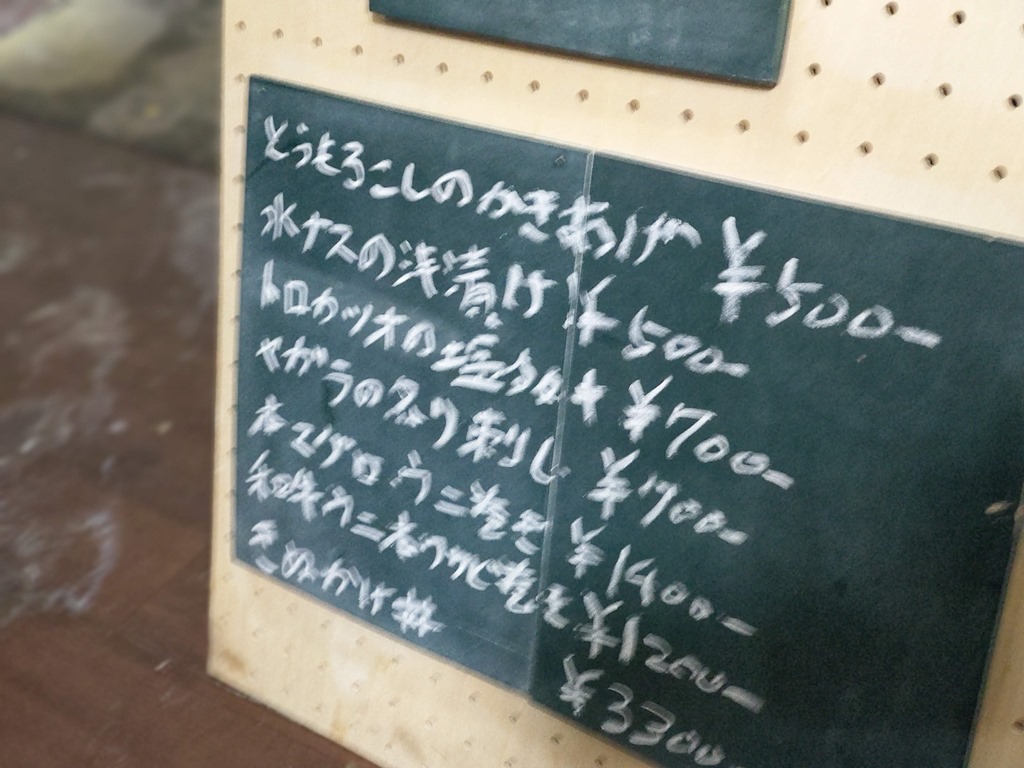 とうもろこしのかきあげ ¥500-
水ナスの浅漬け ¥500-
トロカツオの塩タタキ ¥700-
ヤガラの炙り刺し ¥700-
本マグロウニ巻き ¥1400-
和牛ウニ本ワサビ巻き ¥1200-
きぬかけ ¥3300